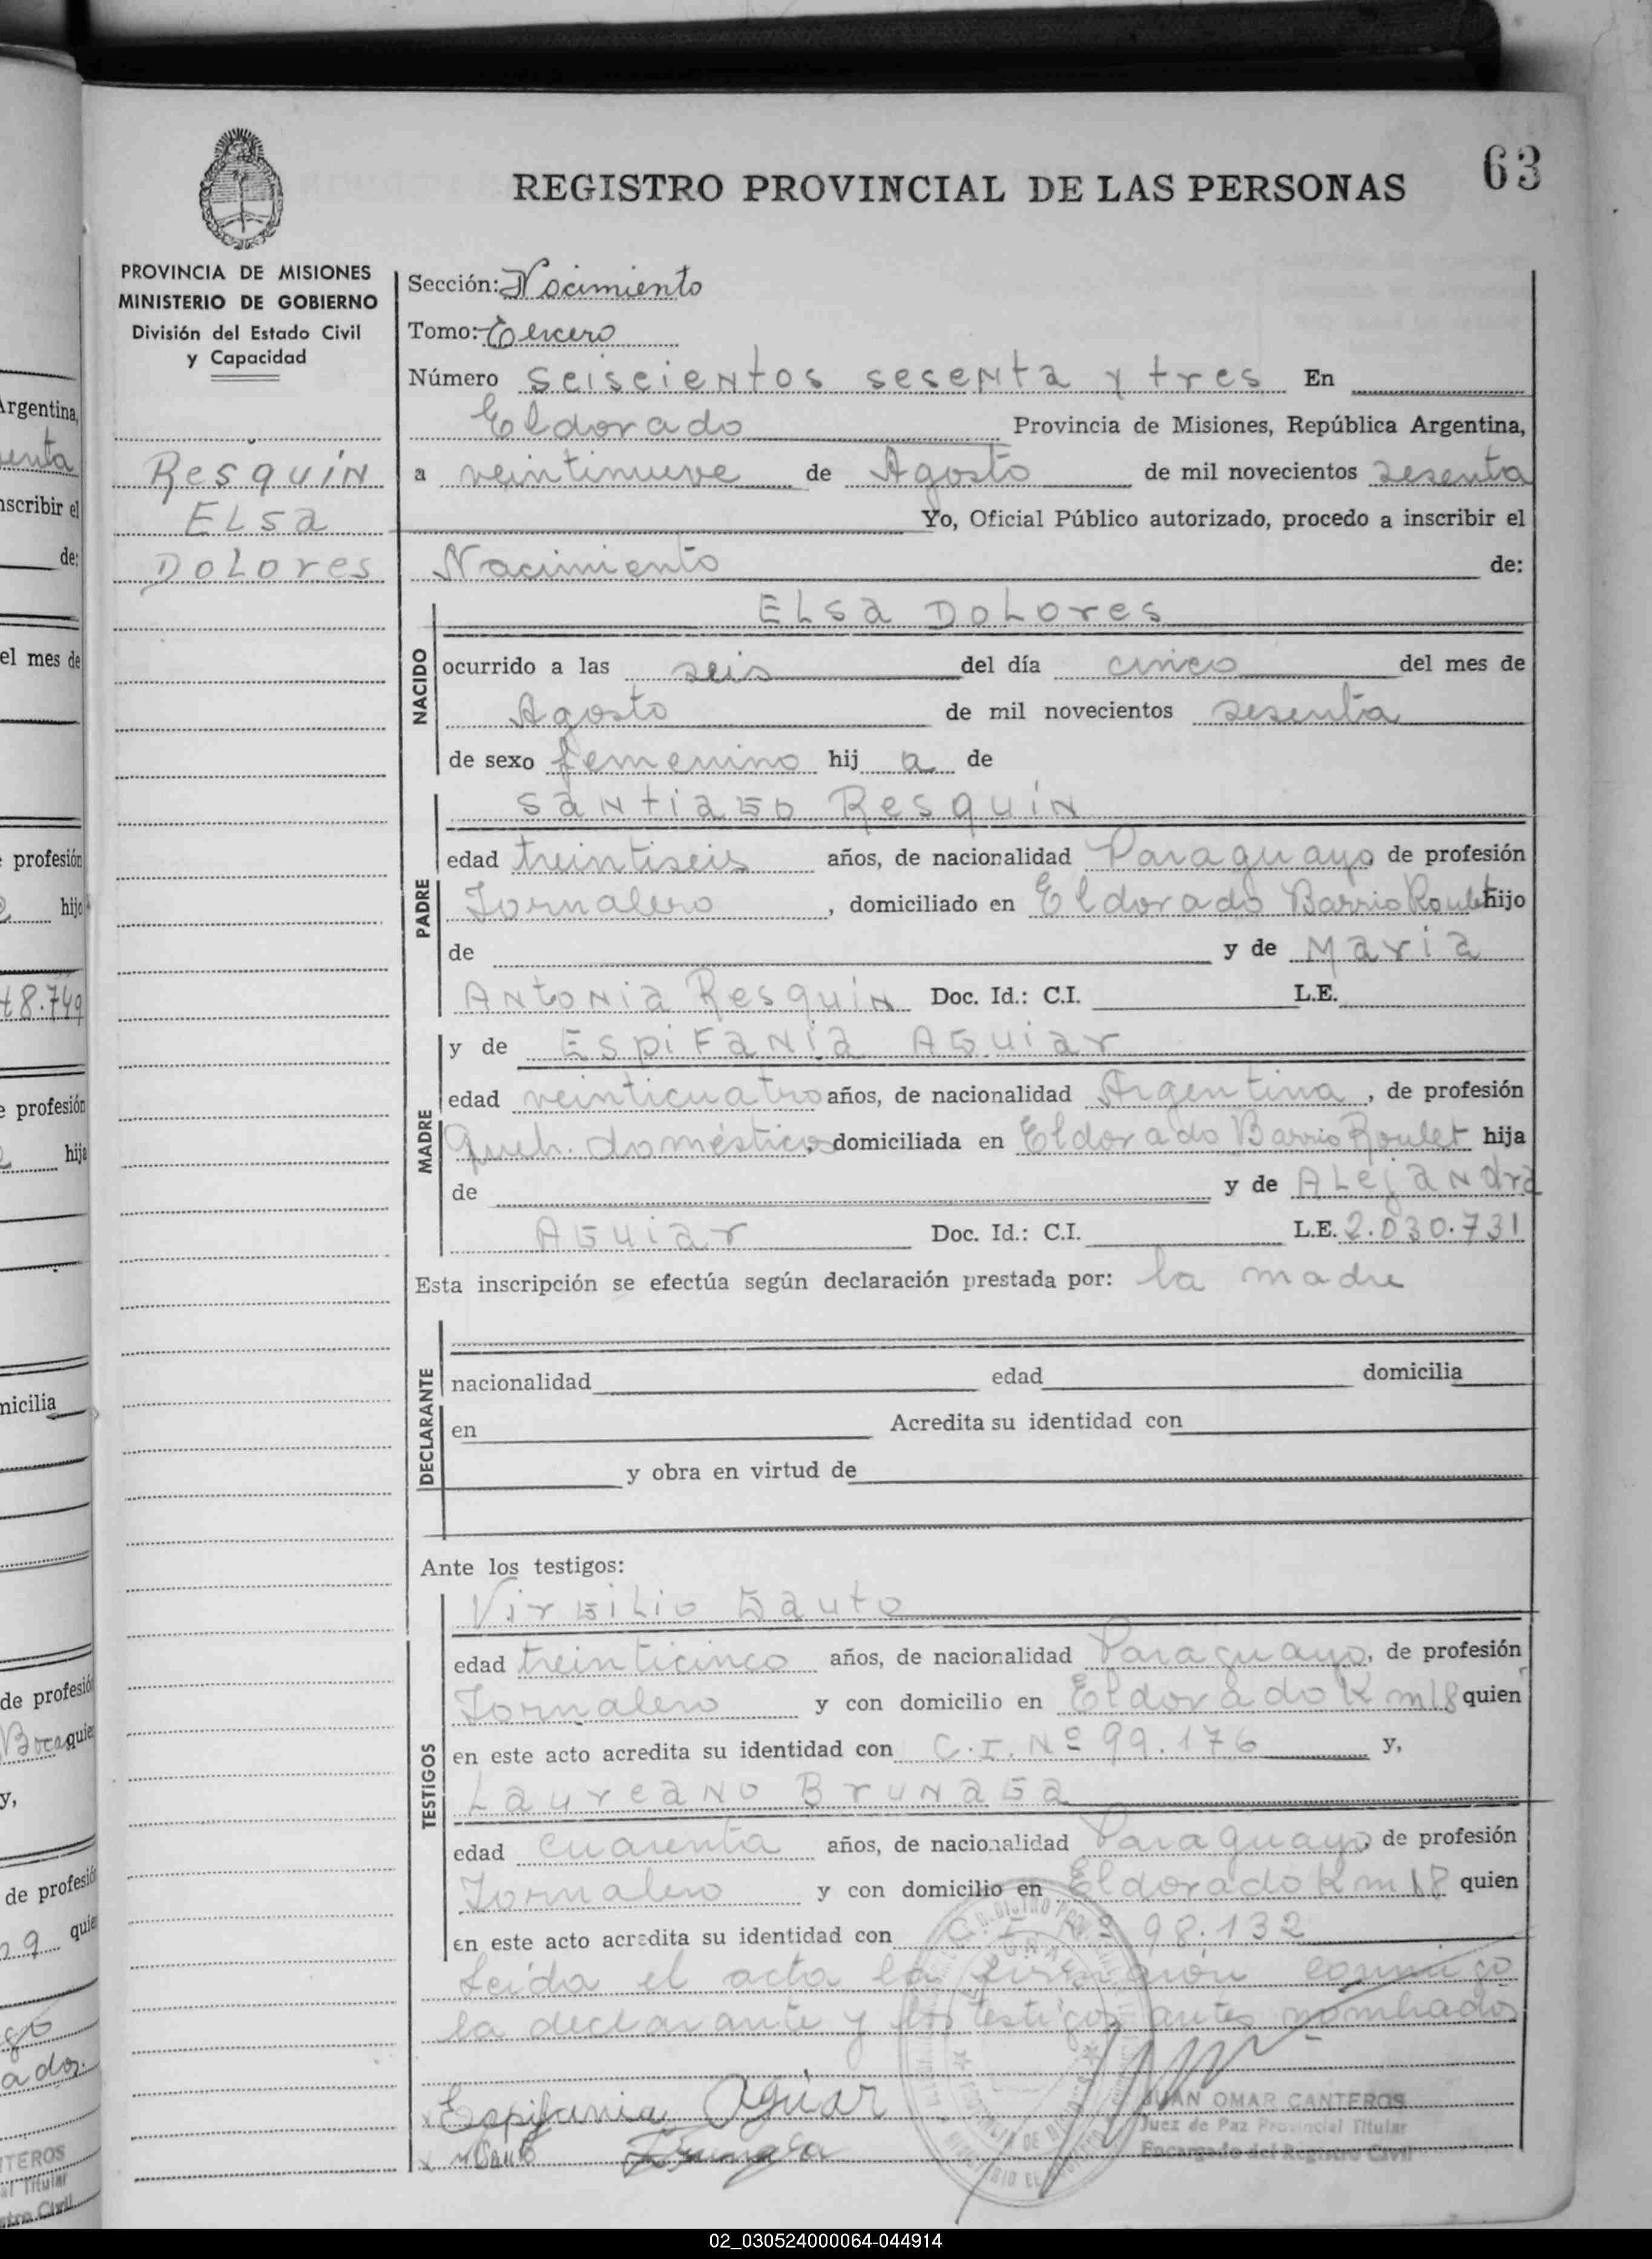 63
REGISTRO PROVINCIAL DE LAS PERSONAS
PROVINCIA DE MISIONES
MINISTERIO DE GOBIERNO
División del Estado Civil
y Capacidad
Resquín
Elsa
Dolores
Sección: Nacimiento
Tomo: Tercero
Número seiscientos sesenta y tres En
Eldorado Provincia de Misiones, República Argentina,
a veintinueve de Agosto de mil novecientos sesenta
Yo, Oficial Público autorizado, procedo a inscribir el
Nacimiento de:
NACIDO
Elsa Dolores
ocurrido a las seis del día cinco del mes de
Agosto de mil novecientos sesenta
de sexo femenino hij a de
PADRE
Santiago Resquín
edad treintiseis años, de nacionalidad Paraguayo de profesión
Jornalero, domiciliado en Eldorado Barrio Roulet hijo
de y de Maria
Antonia Resquín Doc. Id.: C.I. L.E.
MADRE
y de Espifania Aguiar
edad veinticuatro años, de nacionalidad Argentina, de profesión
Queh. domésticos, domiciliada en Eldorado Barrio Roulet hija
de y de Alejandra
Aguiar Doc. Id.: C.I. L.E. 2.030.731
Esta inscripción se efectúa según declaración prestada por: la madre
DECLARANTE
nacionalidad edad domicilia
en Acredita su identidad con
y obra en virtud de
Ante los testigos:
TESTIGOS
Virgilio Gauto
edad treinticinco años, de nacionalidad Paraguayo, de profesión
Jornalero y con domicilio en Eldorado Km 18 quien
en este acto acredita su identidad con C.I. Nº 99.176 y,
Laureano Brunaga
edad cuarenta años, de nacionalidad Paraguayo, de profesión
Jornalero y con domicilio en Eldorado Km 18 quien
en este acto acredita su identidad con C.I. Nº 98.132
Leida el acta la firman conmigo
la declarante y los testigos antes nombrados
Espifania Aguiar
JUAN OMAR CANTEROS
Juez de Paz Provincial Titular
Encargado del Registro Civil
02_030524000064-044914